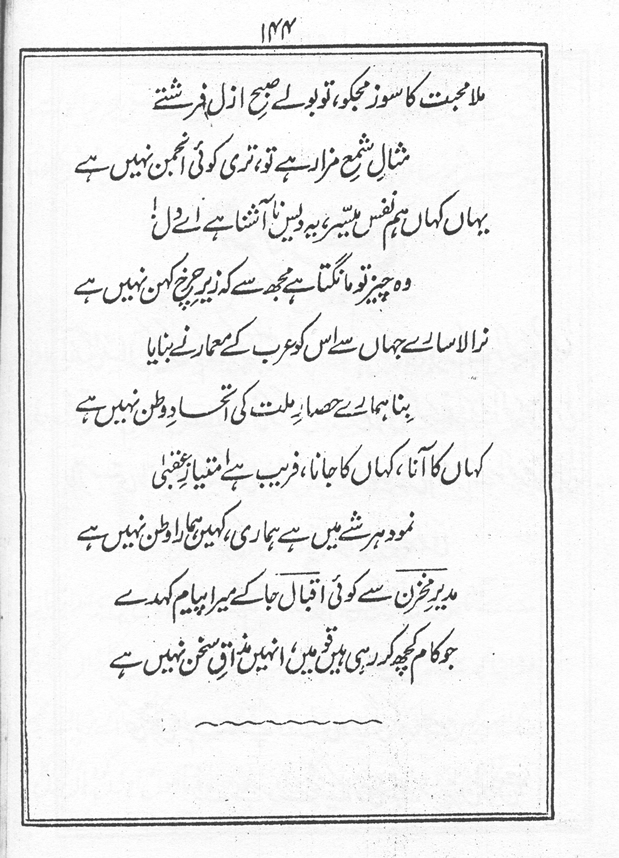 ۱۴۴
ملا محبت کا سوز مجکو، تو بولے صبحِ ازل فرشتے
مثالِ شمعِ مزار ہے تو، تری کوئی انجمن نہیں ہے
یہاں کہاں ہم نفس میسّر، یہ دیس نا آشنا ہے اے دل!
وہ چیز تو مانگتا ہے مجھ سے کہ زیرِ چرخِ کہن نہیں ہے
نرالا سارے جہاں سے اس کو عرب کے معمار نے بنایا
بِنا ہمارے حصارِ ملت کی اتحادِ وطن نہیں ہے
کہاں کا آنا، کہاں کا جانا، فریب ہے امتیازِ عقبیٰ
نمود ہر شے میں ہے ہماری، کہیں ہمارا وطن نہیں ہے
مدیرِ مخزن سے کوئی اقبال جا کے میرا پیام کہدے
جو کام کچھ کر رہی ہیں قومیں، انہیں مذاقِ سخن نہیں ہے